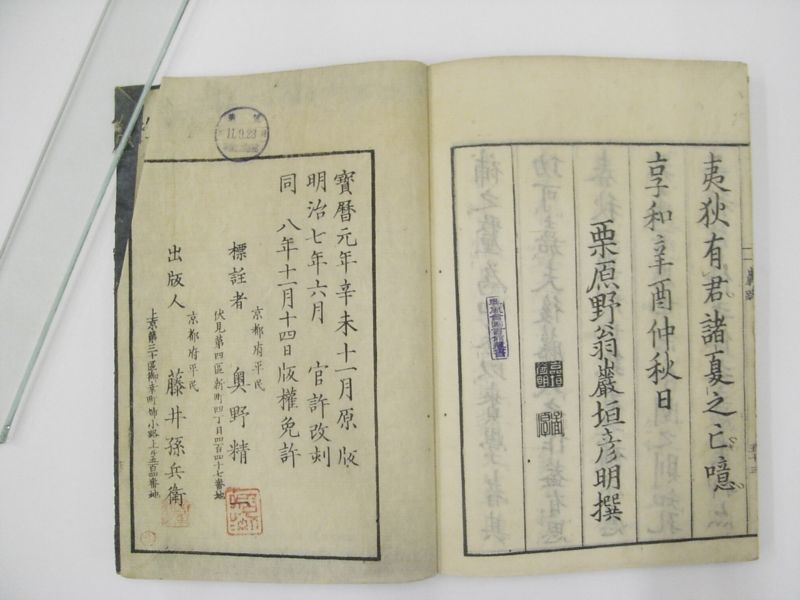 夷狄有君諸夏之亡噫
享和辛酉仲秋日
栗原野翁巖垣彦明撰
寶曆元年辛未十一月原版
明治七年六月 官許改刻
同 八年十一月十四日版權免許
京都府平民
標註者 奥野精一
伏見第四區新町四丁目四百四十七番地
京都府平民
出版人 藤井孫兵衛
上京第三十區御幸町姉小路上ル五百四番地
11.9.23